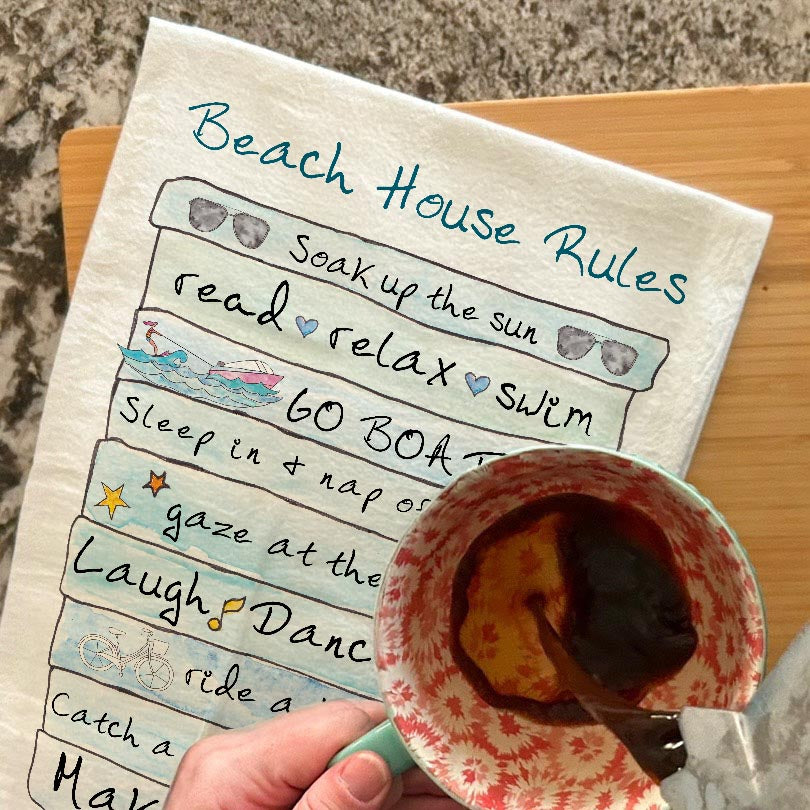 Beach House Rules
Soak up the sun
read relax swim
GO BOAT
Sleep in & nap
gaze at the
Laugh Danc
ride a
Catch a
Mak